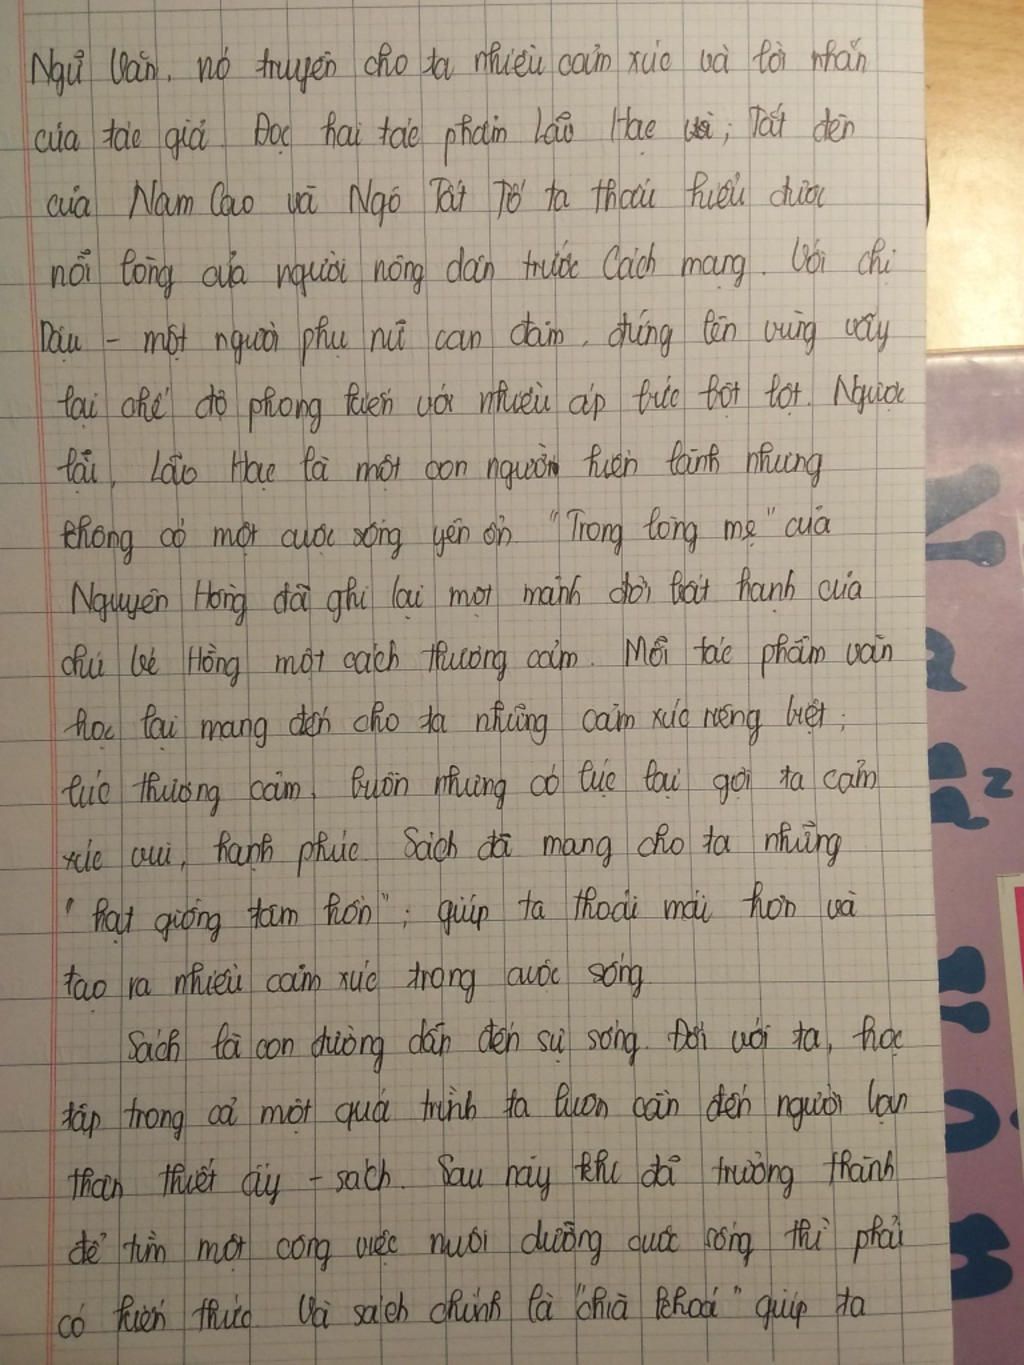 Ngữ Văn, nó truyền cho ta nhiều cảm xúc và lời nhắn
của tác giả. Đọc hai tác phẩm Lão Hạc và, Tắt đèn
của Nam Cao và Ngô Tất Tố ta thấu hiểu được
nỗi lòng của người nông dân trước Cách mạng. Với chị
Dậu - một người phụ nữ can đảm, đứng lên vùng vẫy
lại chế độ phong kiến với nhiều áp bức bột lột. Ngược
lại, Lão Hạc là một con người hiền lành nhưng
không có một cuộc sống yên ổn. "Trong lòng mẹ" của
Nguyên Hồng đã ghi lại một mảnh đời bất hạnh của
chú bé Hồng một cách thương cảm. Mỗi tác phẩm văn
học lại mang đến cho ta những cảm xúc riêng biệt;
lúc thương cảm, buồn nhưng có lúc lại gợi ta cảm
xúc vui, hạnh phúc. Sách đã mang cho ta những
"hạt giống tâm hồn"; giúp ta thoải mái hơn và
tạo ra nhiều cảm xúc trong cuộc sống
Sách là con đường dẫn đến sự sống. Đối với ta, học
tập trong cả một quá trình ta luôn cần đến người bạn
thân thiết ấy - sách. Sau này khi đã trưởng thành
để tìm một công việc nuôi dưỡng cuộc sống thì phải
có kiến thức. Và sách chính là "chìa khoá" giúp ta